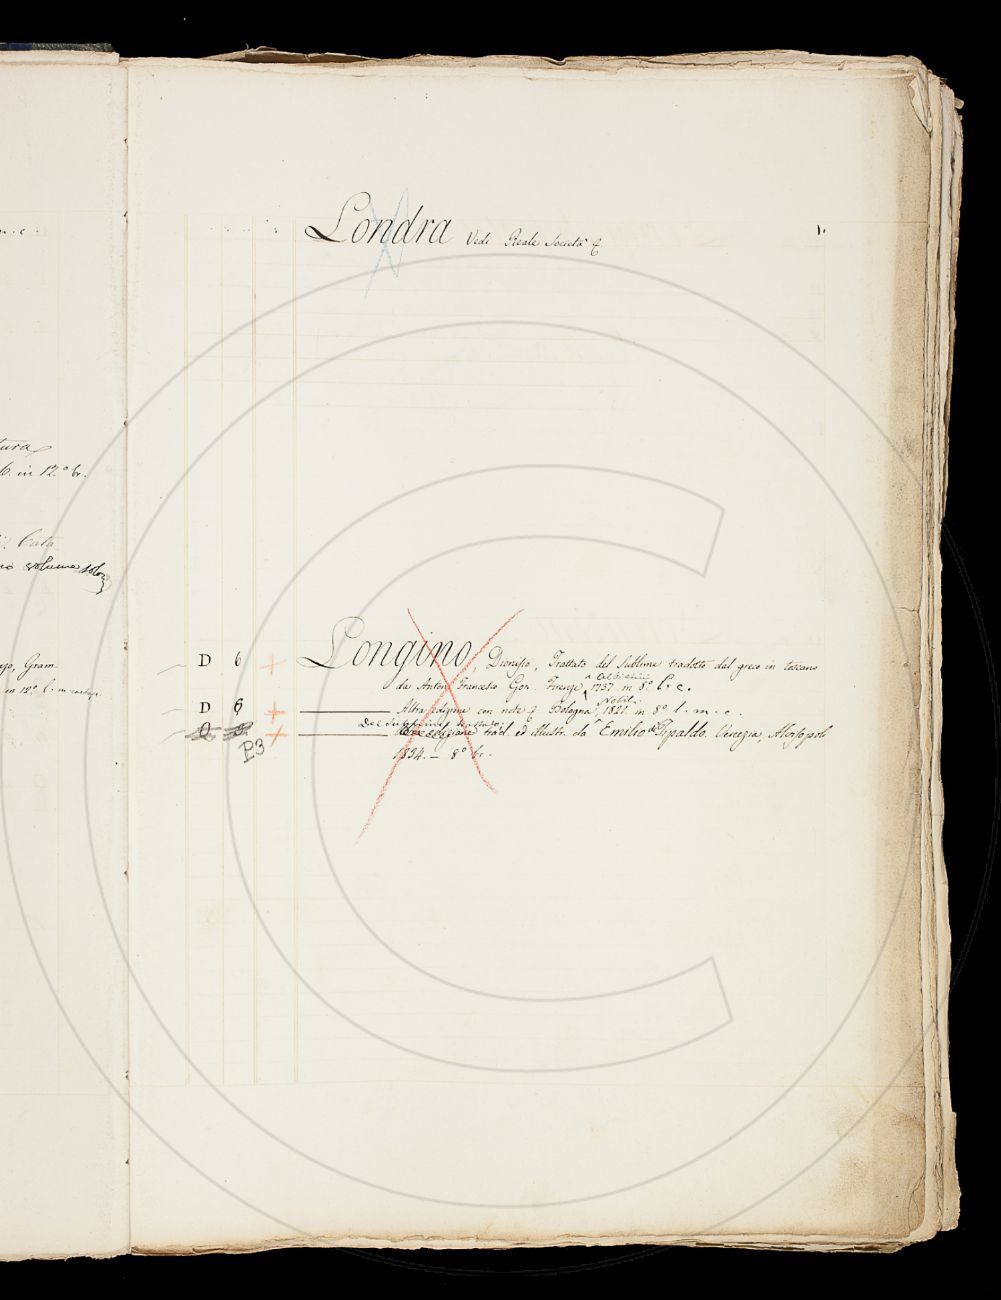 n. c.
tura
6. in 12.º br.
Cata
volume solo
ajo, Gram-
in 12º.
Londra Vedi Reale Società &
1.
D 6 Longino, Dionisio, Trattato del sublime tradotto dal greco in toscano
Albizini
da Anton Francesco Gori. Firenze ^ 1737. in 8º. l. c.
Nobili
D 6 Altra edizione con note & Bologna ^, 1821. in 8º l. m. c.
Del sublime trattato
Q Altra edizione trad. ed illustr. da Emilio de Tipaldo. Venezia, Alvisopoli
P.3 1834. — 8º br.